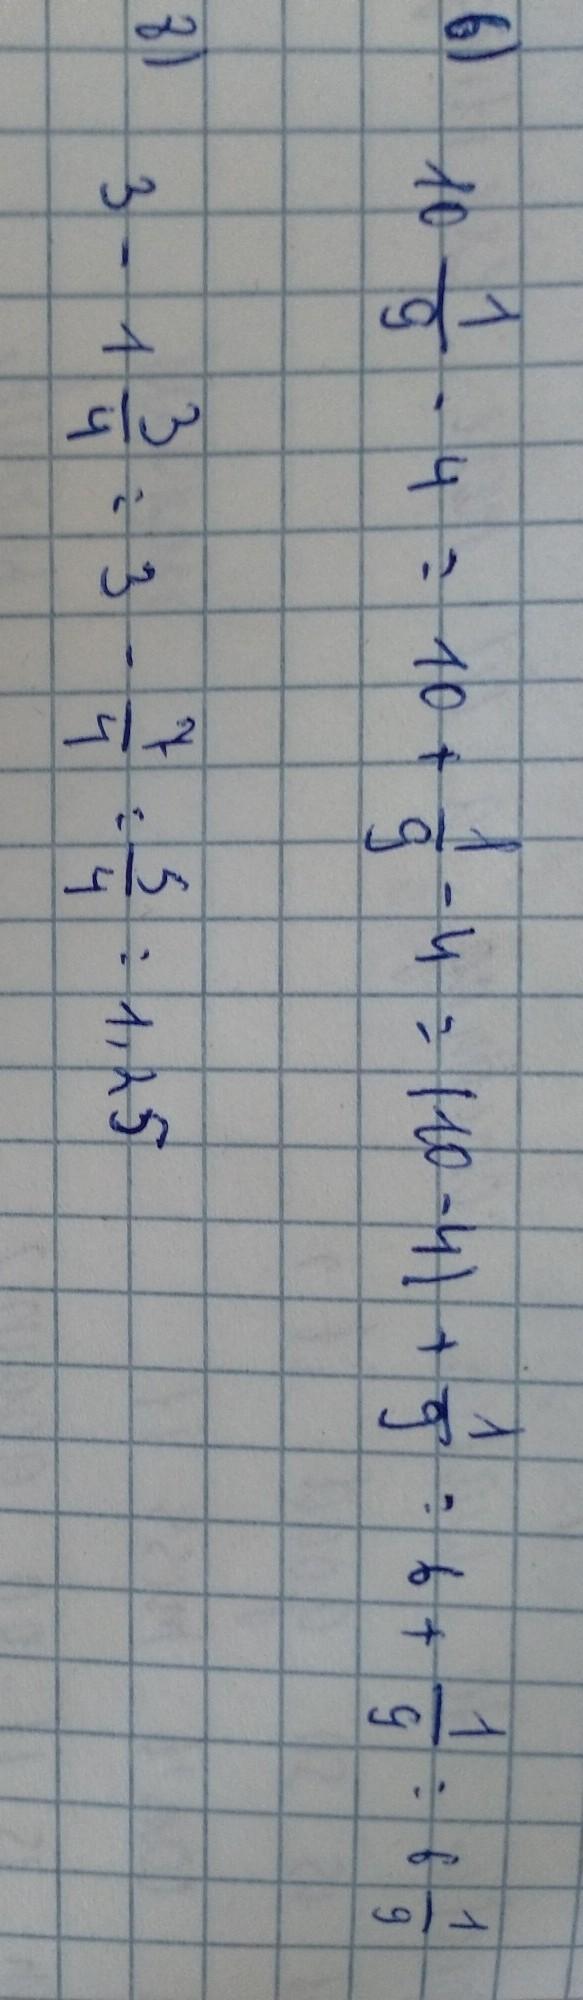 в) 10 1/9 - 4 = 10 + 1/9 - 4 = (10 - 4) + 1/9 = 6 + 1/9 = 6 1/9
г) 3 - 1 3/4 = 3 - 7/4 = 5/4 = 1,25